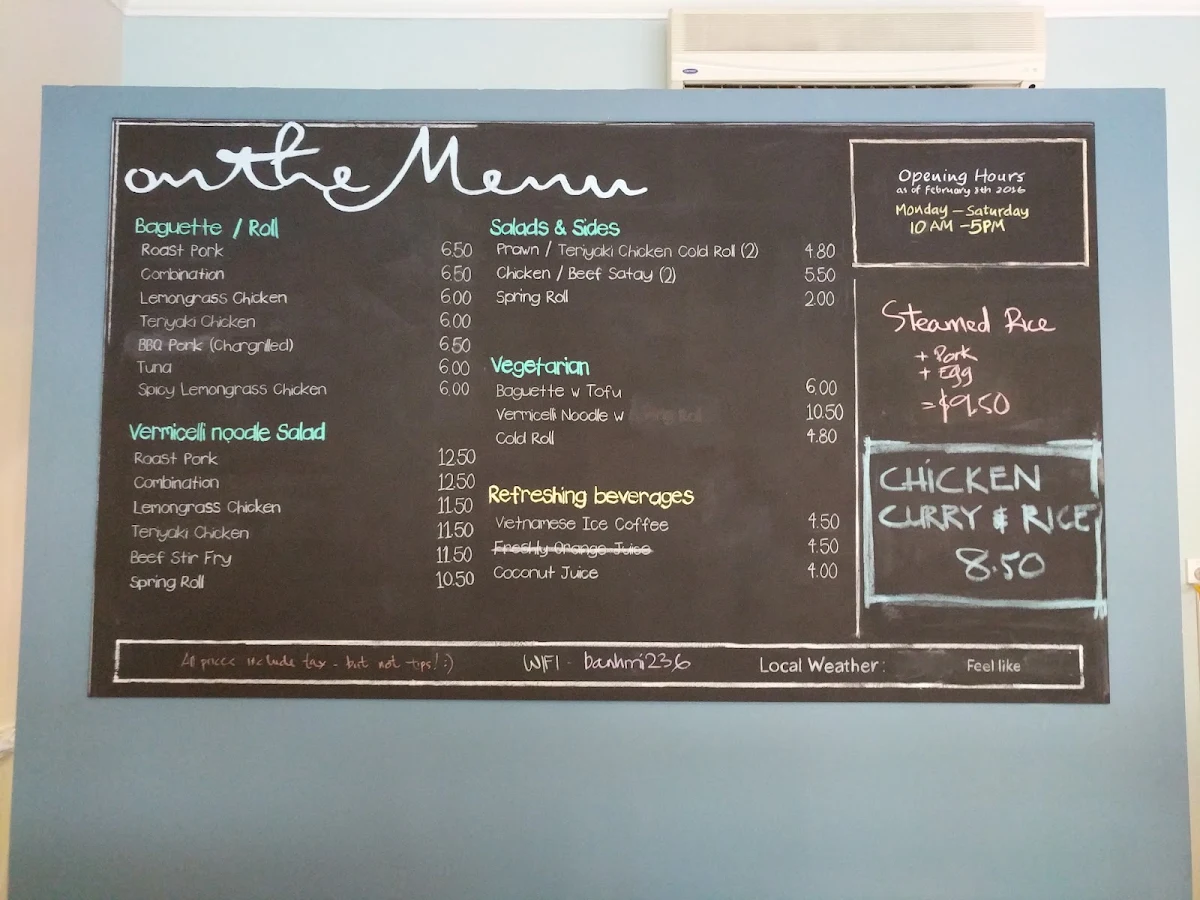 on the Menu
Baguette / Roll
Roast Pork 6.50
Combination 6.50
Lemongrass Chicken 6.00
Teriyaki Chicken 6.00
BBQ Pork (Chargrilled) 6.50
Tuna 6.00
Spicy Lemongrass Chicken 6.00
Vermicelli noodle Salad
Roast Pork 12.50
Combination 12.50
Lemongrass Chicken 11.50
Teriyaki Chicken 11.50
Beef Stir Fry 11.50
Spring Roll 10.50
Salads & Sides
Prawn / Teriyaki Chicken Cold Roll (2) 4.80
Chicken / Beef Satay (2) 5.50
Spring Roll 2.00
Vegetarian
Baguette w Tofu 6.00
Vermicelli Noodle w Spring Roll 10.50
Cold Roll 4.80
Refreshing beverages
Vietnamese Ice Coffee 4.50
Freshly Orange Juice 4.50
Coconut Juice 4.00
Opening Hours
as of February 8th 2016
Monday - Saturday
10 AM - 5PM
Steamed Rice
+ Pork
+ Egg
= $9.50
CHICKEN
CURRY & RICE
8.50
All prices include tax - but not tips! :)
WIFI - banhmi236
Local Weather:
Feel like